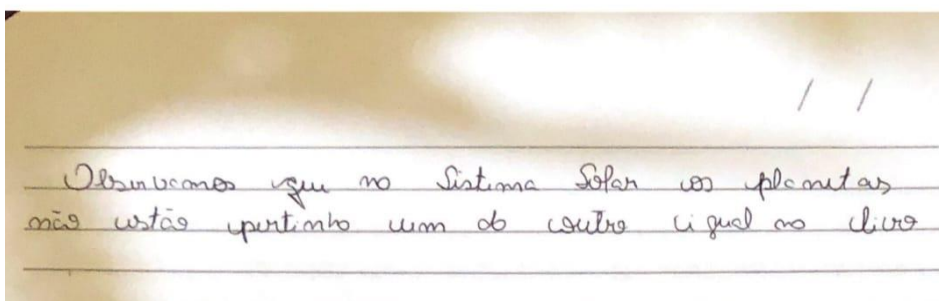 / /
Observamos que no Sistema Solar os planetas
não estão pertinho um do outro igual no livro